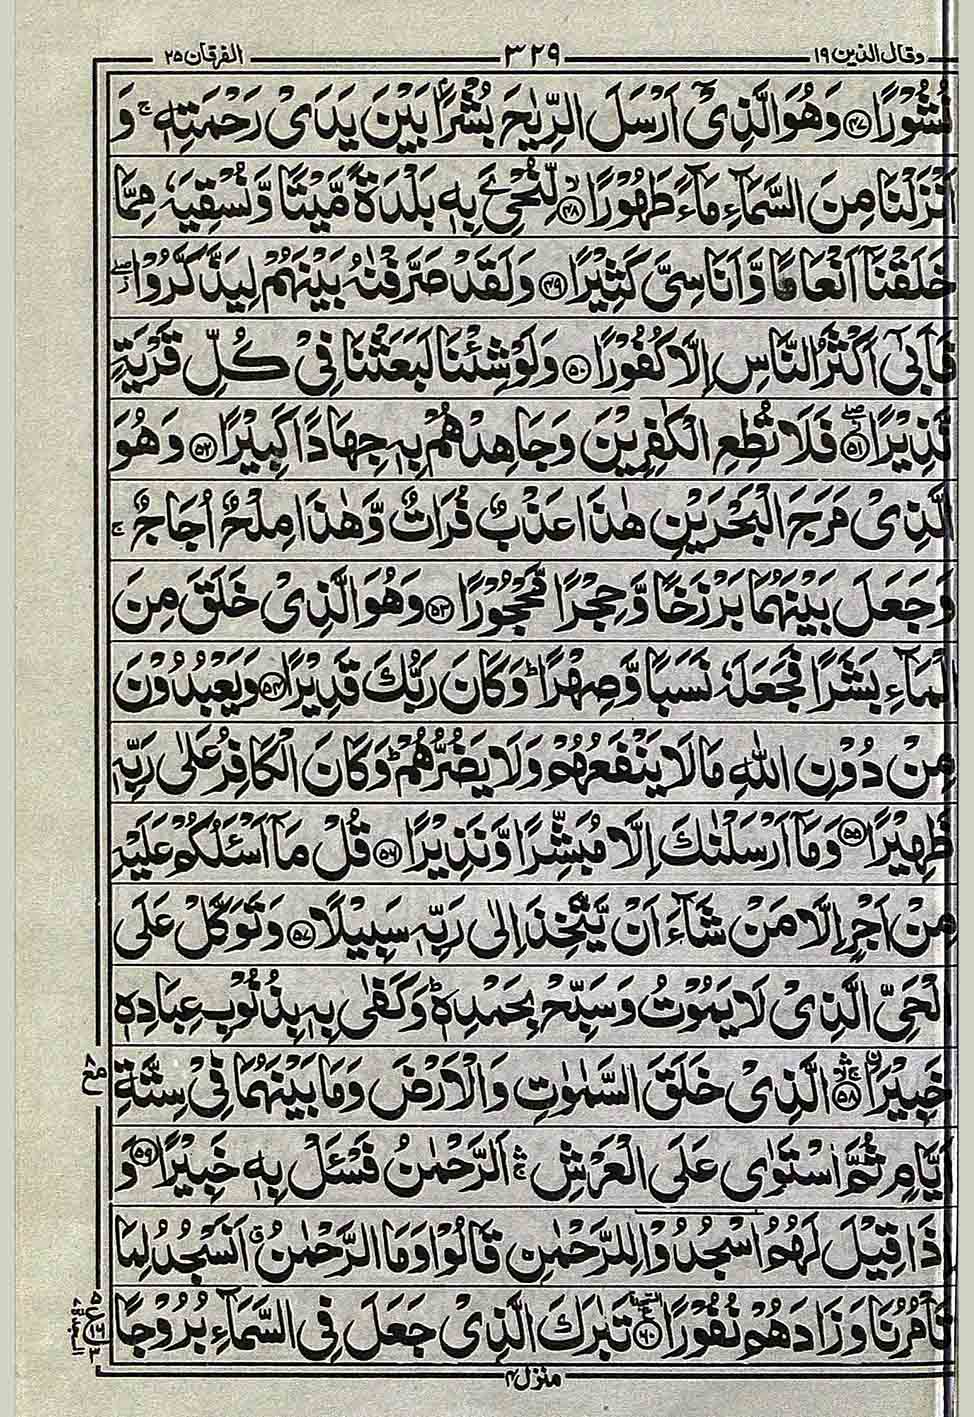 وقال الذين ١٩ ٣٢٩ الفرقان ٢٥
نُشُوْرًا ﴿۴۷﴾ وَهُوَ الَّذِیْۤ اَرْسَلَ الرِّیٰحَ بُشْرًۢا بَیْنَ یَدَیْ رَحْمَتِهٖ ۚ وَ
اَنْزَلْنَا مِنَ السَّمَآءِ مَآءً طَهُوْرًا ﴿۴۸﴾ۙ لِّنُحْیِۦَ بِهٖ بَلْدَةً مَّیْتًا وَّنُسْقِیَهٗ مِمَّا
خَلَقْنَاۤ اَنْعَامًا وَّاَنَاسِیَّ كَثِیْرًا ﴿۴۹﴾ وَلَقَدْ صَرَّفْنٰهُ بَیْنَهُمْ لِیَذَّكَّرُوْا ۖؗ
فَاَبٰۤی اَكْثَرُ النَّاسِ اِلَّا كُفُوْرًا ﴿۵۰﴾ وَلَوْ شِئْنَا لَبَعَثْنَا فِیْ كُلِّ قَرْیَةٍ
نَّذِیْرًا ﴿۵۱﴾ۖ فَلَا تُطِعِ الْكٰفِرِیْنَ وَجَاهِدْهُمْ بِهٖ جِهَادًا كَبِیْرًا ﴿۵۲﴾ وَهُوَ
الَّذِیْ مَرَجَ الْبَحْرَیْنِ هٰذَا عَذْبٌ فُرَاتٌ وَّهٰذَا مِلْحٌ اُجَاجٌ ۚ
وَجَعَلَ بَیْنَهُمَا بَرْزَخًا وَّحِجْرًا مَّحْجُوْرًا ﴿۵۳﴾ وَهُوَ الَّذِیْ خَلَقَ مِنَ
الْمَآءِ بَشَرًا فَجَعَلَهٗ نَسَبًا وَّصِهْرًا ؕ وَكَانَ رَبُّكَ قَدِیْرًا ﴿۵۴﴾ وَیَعْبُدُوْنَ
مِنْ دُوْنِ اللّٰهِ مَا لَا یَنْفَعُهُمْ وَلَا یَضُرُّهُمْ ؕ وَكَانَ الْكَافِرُ عَلٰی رَبِّهٖ
ظَهِیْرًا ﴿۵۵﴾ وَمَاۤ اَرْسَلْنٰكَ اِلَّا مُبَشِّرًا وَّنَذِیْرًا ﴿۵۶﴾ قُلْ مَاۤ اَسْـَٔلُكُمْ عَلَیْهِ
مِنْ اَجْرٍ اِلَّا مَنْ شَآءَ اَنْ یَّتَّخِذَ اِلٰی رَبِّهٖ سَبِیْلًا ﴿۵۷﴾ وَتَوَكَّلْ عَلَی
الْحَیِّ الَّذِیْ لَا یَمُوْتُ وَسَبِّحْ بِحَمْدِهٖ ؕ وَكَفٰی بِهٖ بِذُنُوْبِ عِبَادِهٖ
خَبِیْرَا ﴿۵۸﴾ۚۛ ۣالَّذِیْ خَلَقَ السَّمٰوٰتِ وَالْاَرْضَ وَمَا بَیْنَهُمَا فِیْ سِتَّةِ
اَیَّامٍ ثُمَّ اسْتَوٰی عَلَی الْعَرْشِ ۚۛ اَلرَّحْمٰنُ فَسْـَٔلْ بِهٖ خَبِیْرًا ﴿۵۹﴾ وَ
اِذَا قِیْلَ لَهُمُ اسْجُدُوْا لِلرَّحْمٰنِ قَالُوْا وَمَا الرَّحْمٰنُ ۗ اَنَسْجُدُ لِمَا
تَاْمُرُنَا وَزَادَهُمْ نُفُوْرًا ﴿۶۰﴾ تَبٰرَكَ الَّذِیْ جَعَلَ فِی السَّمَآءِ بُرُوْجًا
منزل ۴